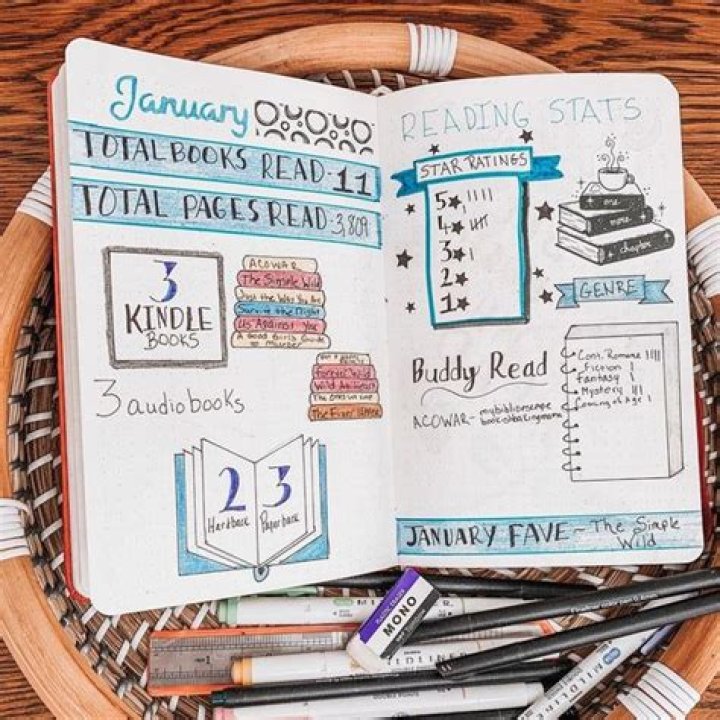 January
TOTAL BOOKS READ-11
TOTAL PAGES READ-3,809
3
KINDLE
BOOKS
ACOWAR
The Simple Wild
Just the Way You Are
Survive the Night
Us Against You
A Good Girl's Guide
to Murder
Forever Wild
Wild At Heart
The Ones We
The Finer
3 audiobooks
2
Hardback
3
Paperback
READING STATS
STAR RATINGS
5
4
3
2
1
one
more
chapter
GENRE
Cont. Romance
Fiction
Fantasy
Mystery
Coming of Age
Buddy Read
ACOWAR-
JANUARY FAVE - The Simple
Wild
PLASTIC ERASER
MONO
MILDLINER
MILDLINER